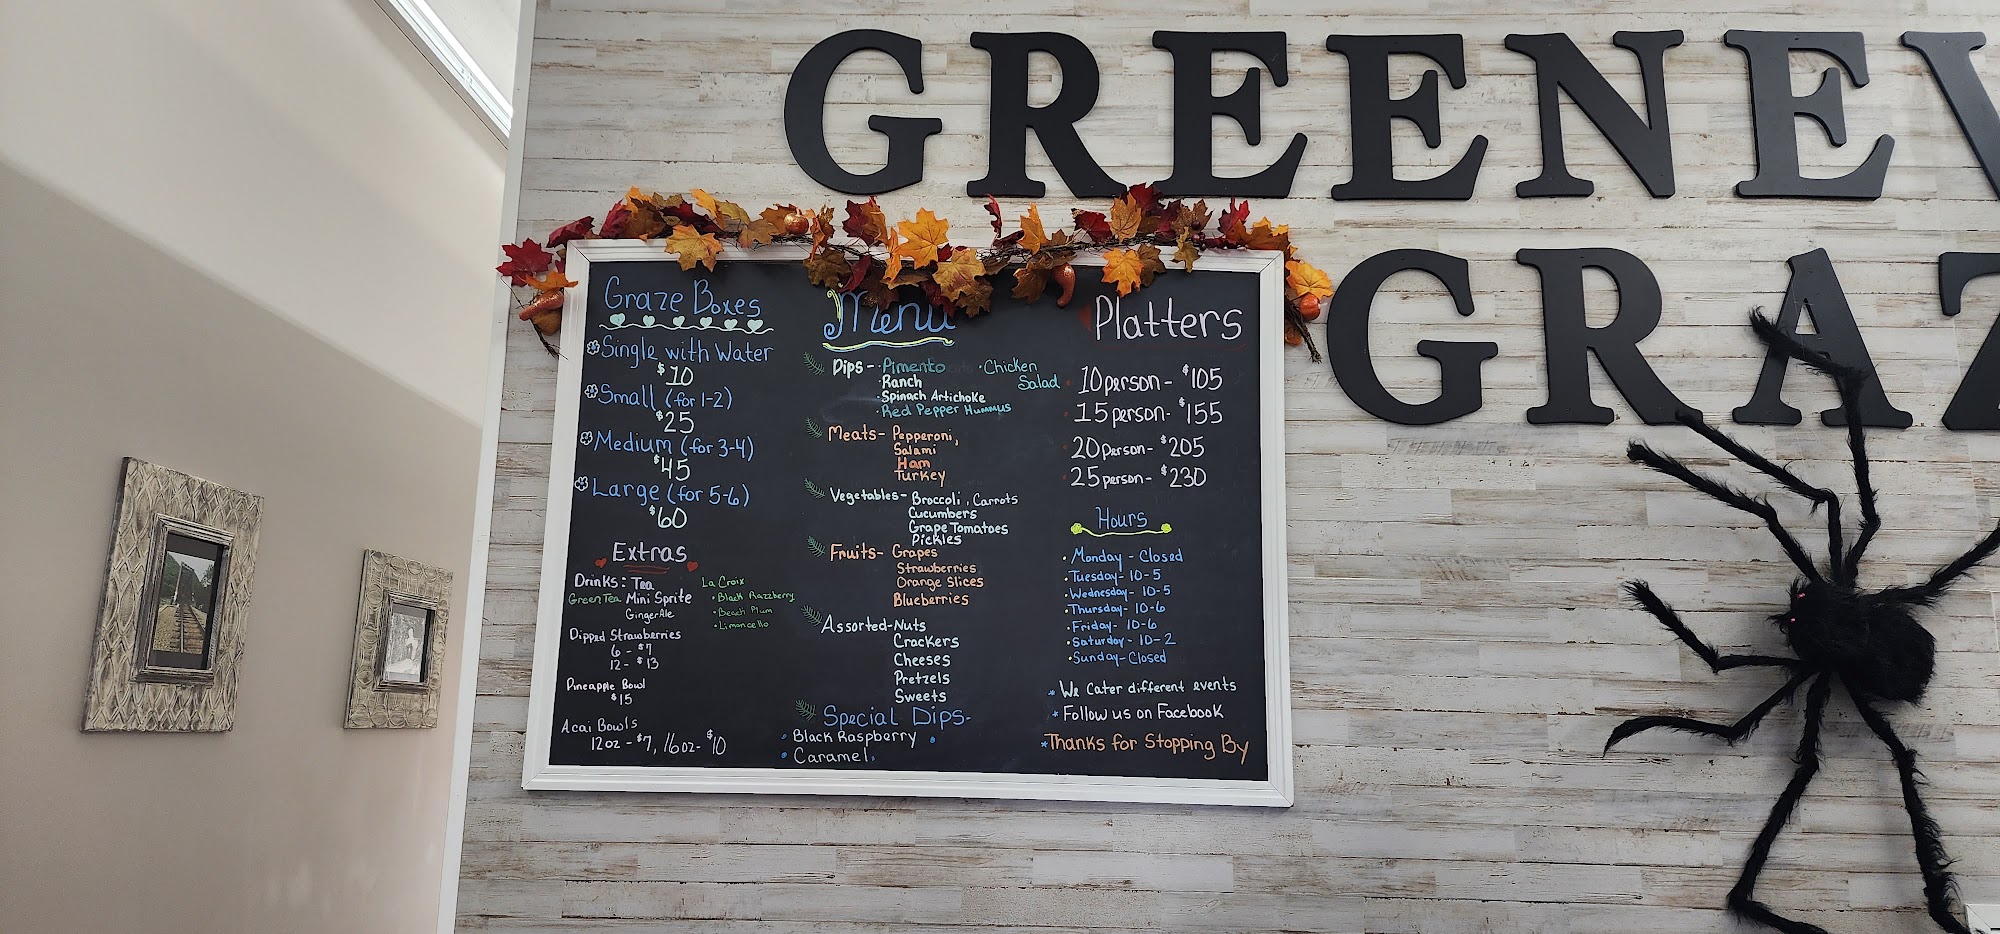 GREENEV
GRAZ
Graze Boxes
Single with Water
$10
Small (for 1-2)
$25
Medium (for 3-4)
$45
Large (for 5-6)
$60
Extras
Drinks: Tea
Green Tea Mini Sprite
GingerAle
La Croix
• Black Razzberry
• Beach Plum
• Limoncello
Dipped Strawberries
6 - $7
12 - $13
Pineapple Bowl
$15
Acai Bowls
12oz - $7, 16oz - $10
Menu
Dips - • Pimento • Chicken
• Ranch Salad
• Spinach Artichoke
• Red Pepper Hummus
Meats - Pepperoni,
Salami
Ham
Turkey
Vegetables - Broccoli, Carrots
Cucumbers
Grape Tomatoes
Pickles
Fruits - Grapes
Strawberries
Orange Slices
Blueberries
Assorted - Nuts
Crackers
Cheeses
Pretzels
Sweets
Special Dips -
• Black Raspberry •
• Caramel
Platters
10 person - $105
15 person - $155
20 person - $205
25 person - $230
Hours
• Monday - Closed
• Tuesday - 10-5
• Wednesday - 10-5
• Thursday - 10-6
• Friday - 10-6
• Saturday - 10-2
• Sunday - Closed
* We Cater different events
* Follow us on Facebook
* Thanks for Stopping By